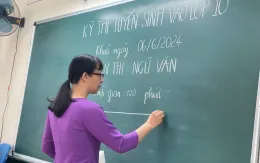 KỲ THI TUYỂN SINH VÀO LỚP 10
Khoá ngày 06/6/2024
THI NGỮ VĂN
gian 120 phút